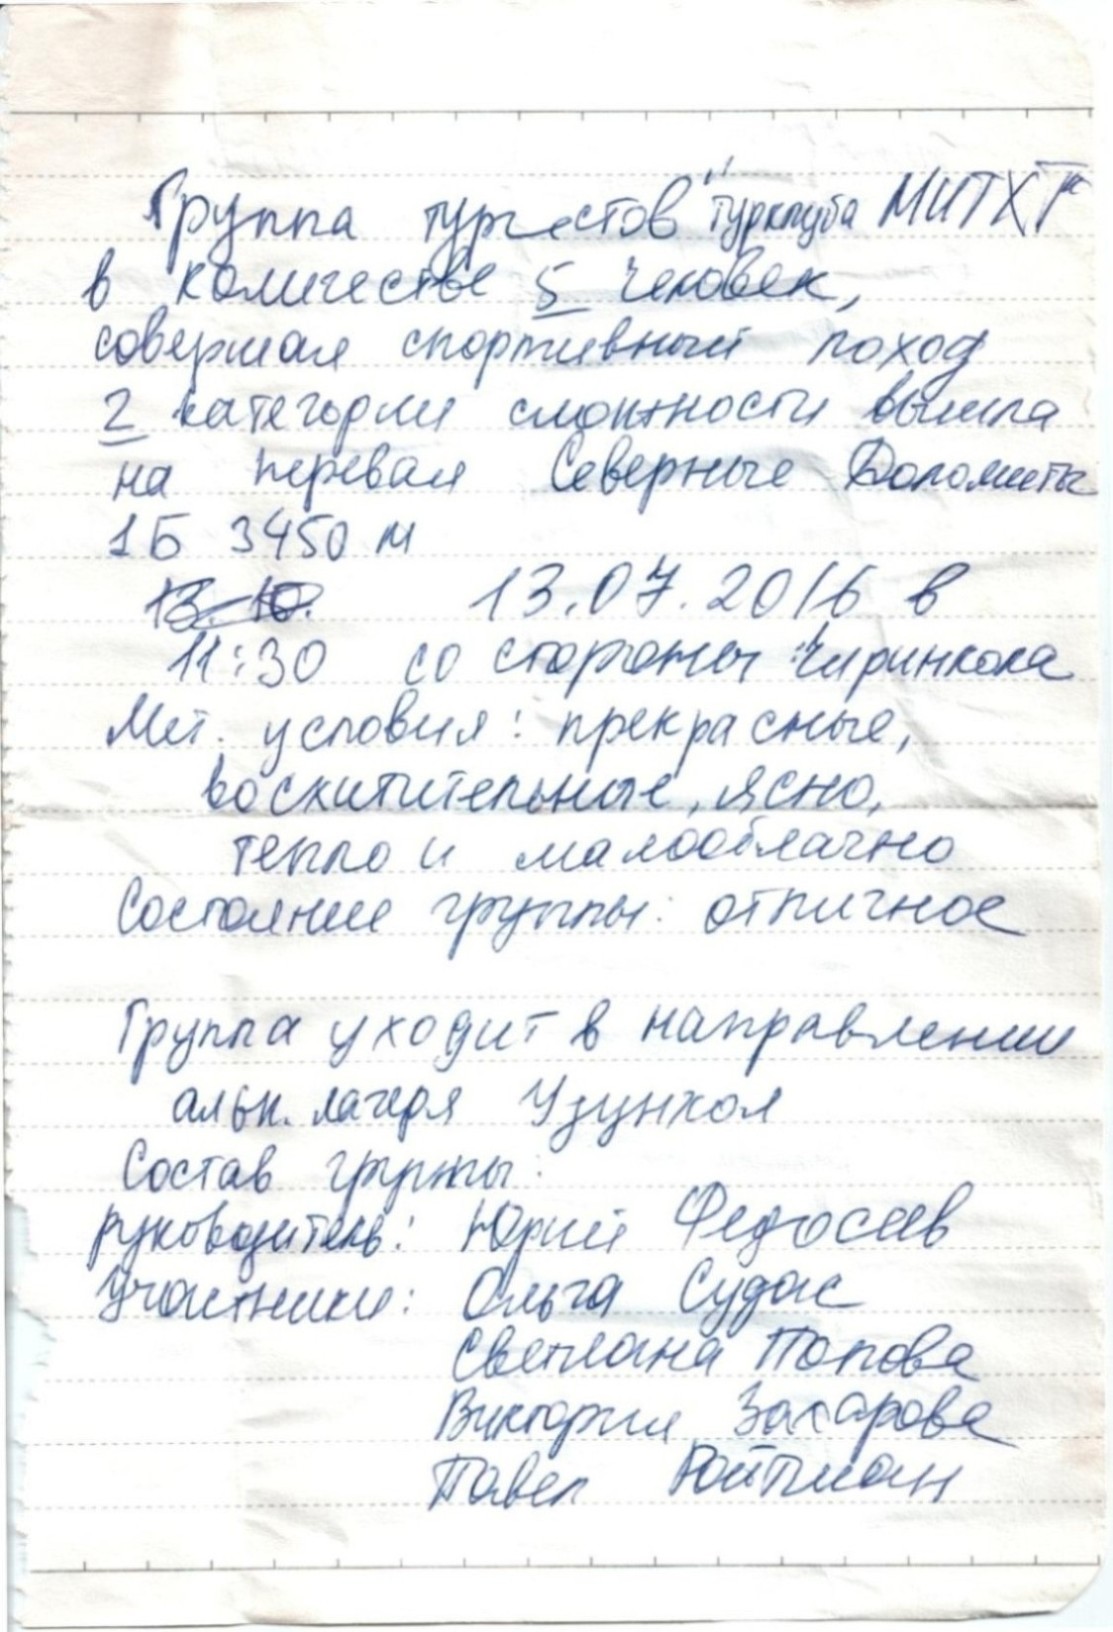 Группа туристов "Турклуба МИТХТ"
в количестве 5 человек,
совершая спортивный поход
2 категории сложности вышла
на перевал Северные Доломиты
1Б 3450 м
13.10. 13.07.2016 в
11:30 со стороны Чиринкола
Мет. условия: прекрасные,
восхитительные, ясно,
тепло и малооблачно
Состояние группы: отличное
Группа уходит в направлении
альп. лагеря Узункол
Состав группы:
руководитель: Юрий Федосеев
Участники: Ольга Судос
Светлана Попова
Виктория Захарова
Павел Ройтман